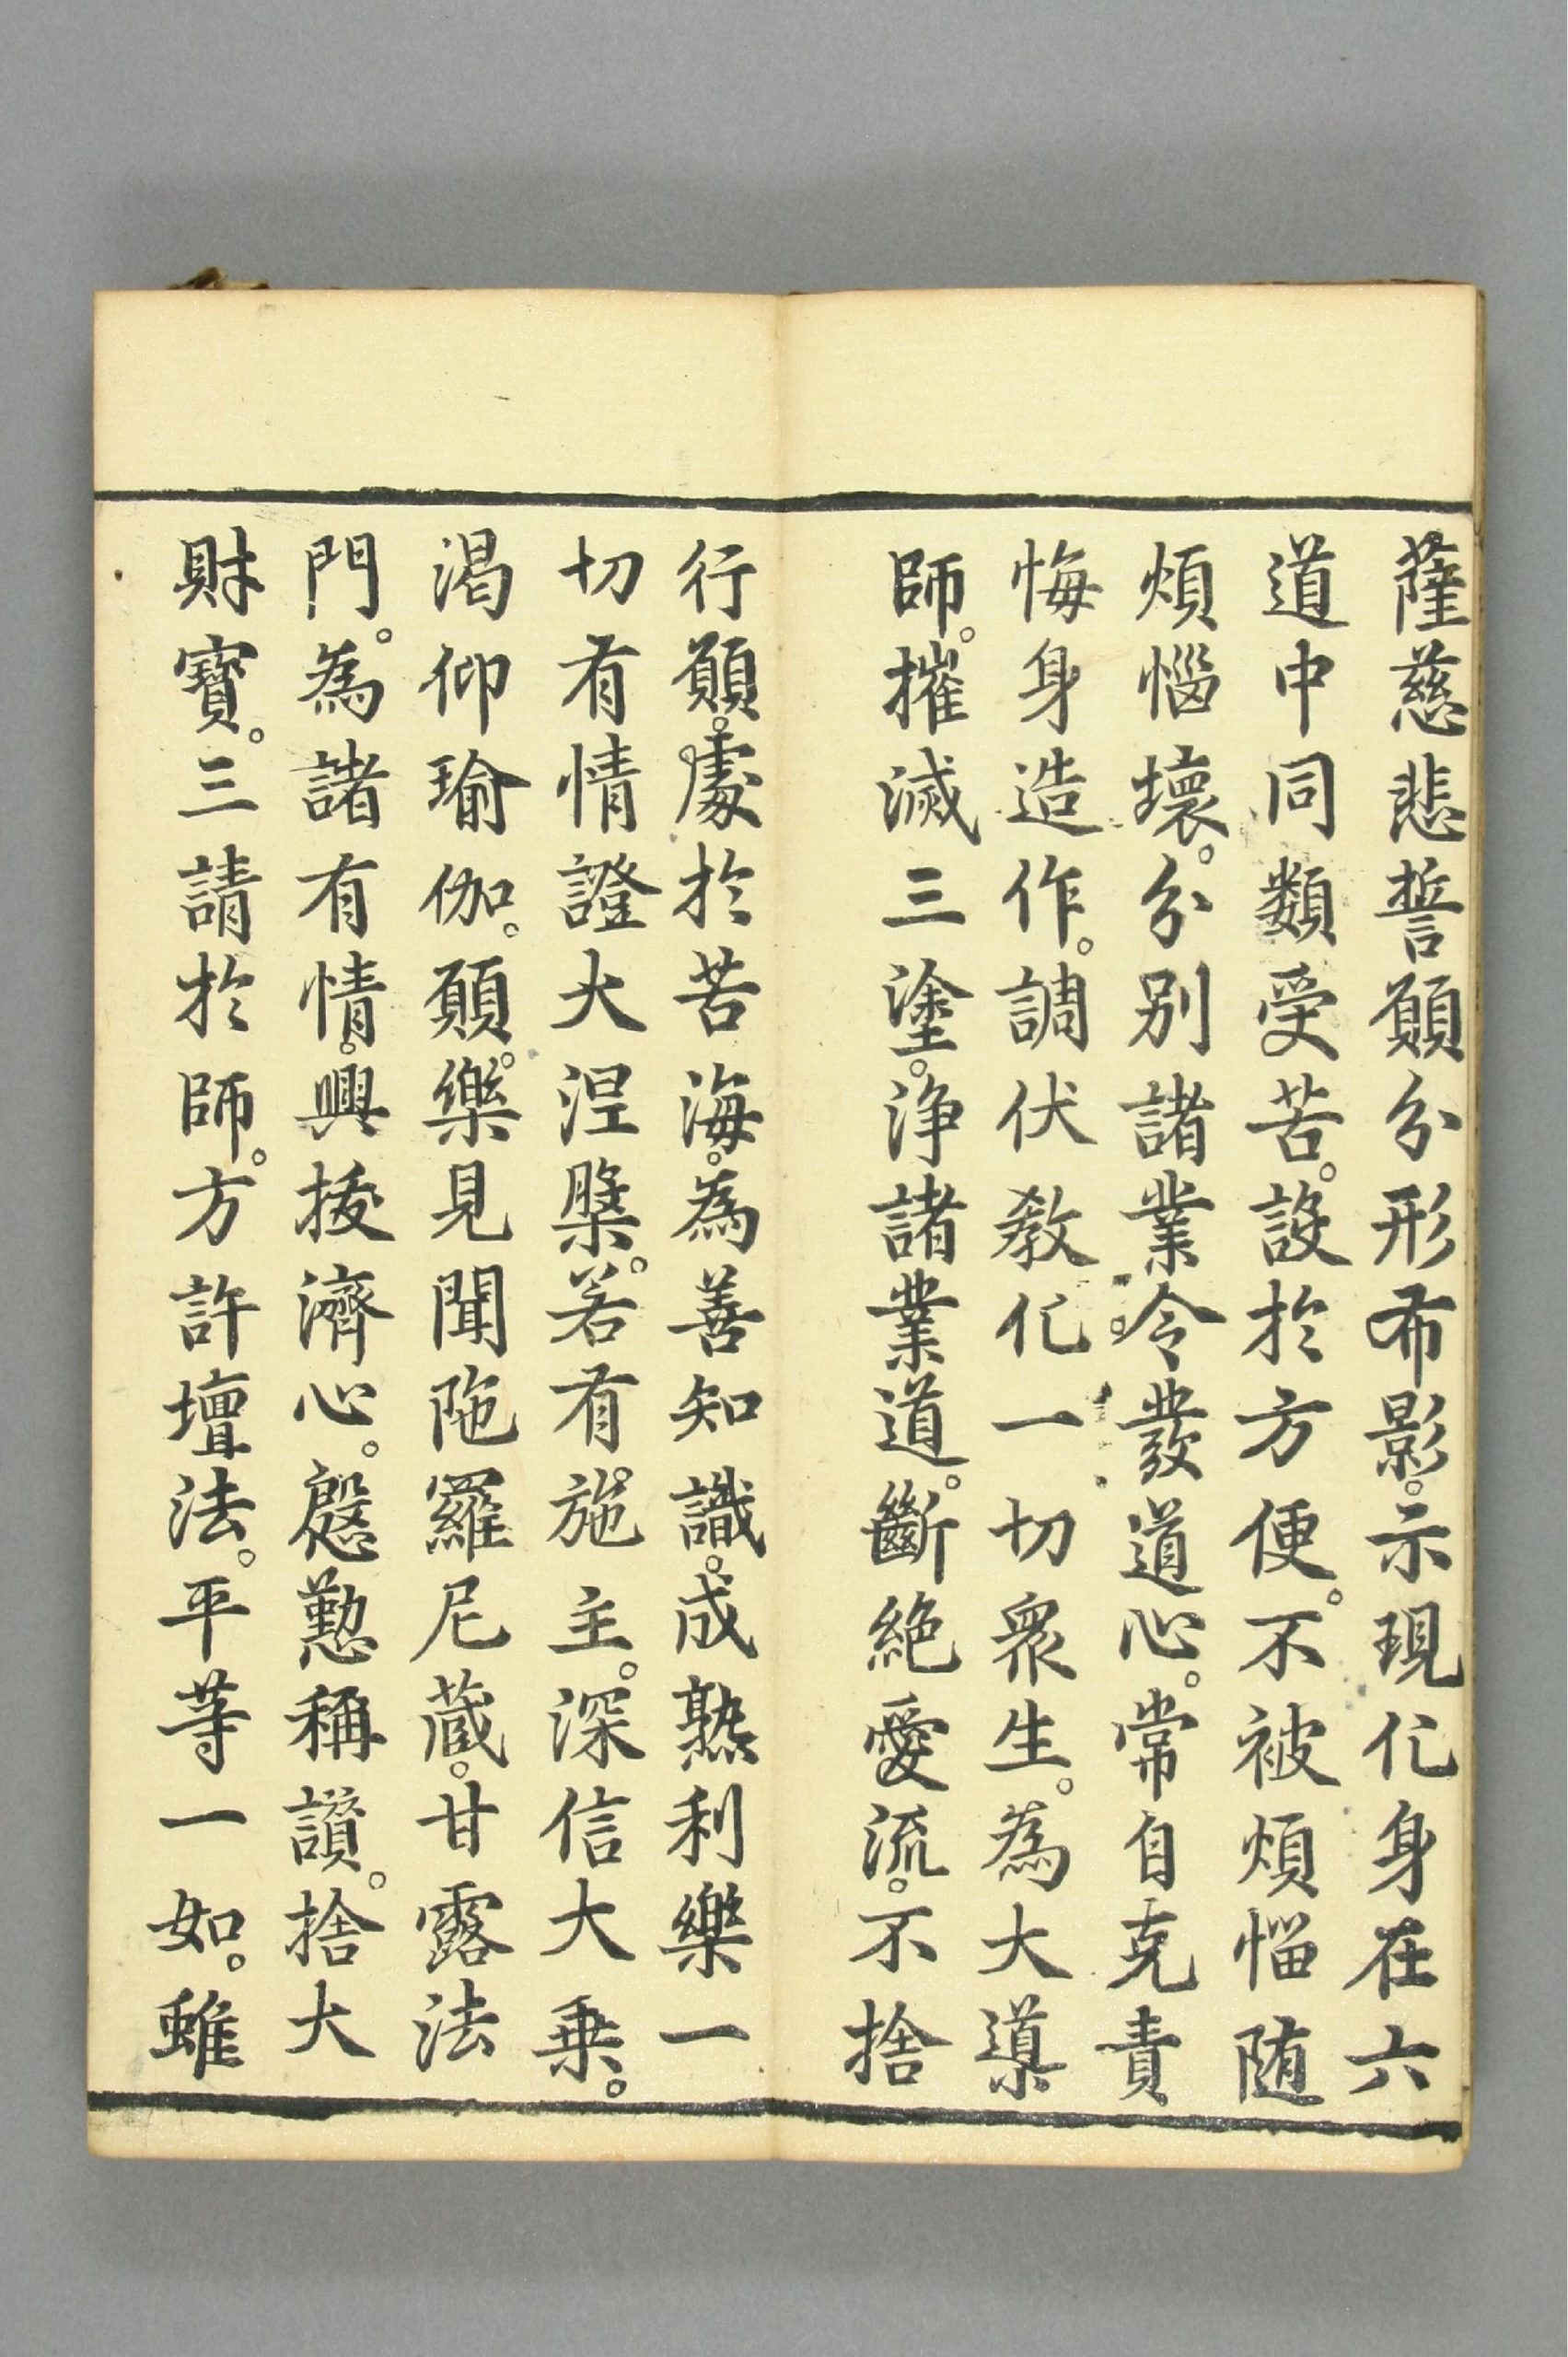 薩慈悲誓願分形布影。示現化身在六
道中同類受苦。設於方便。不被煩惱随
煩惱壞。分別諸業。令發道心。常自克責
悔身造作。調伏教化一切衆生。為大導
師。摧滅三塗。浄諸業道。斷絶愛流。不捨
行願。處於苦海。為善知識。成熟利樂一
切有情證大涅槃。若有。施主。深信大乗。
渇仰瑜伽。願。樂見聞陁羅尼蔵。甘露法
門。為諸有情。興拔濟心。慇懃稱讃。捨大
財寶。三請於師。方許壇法。平等一如。雖